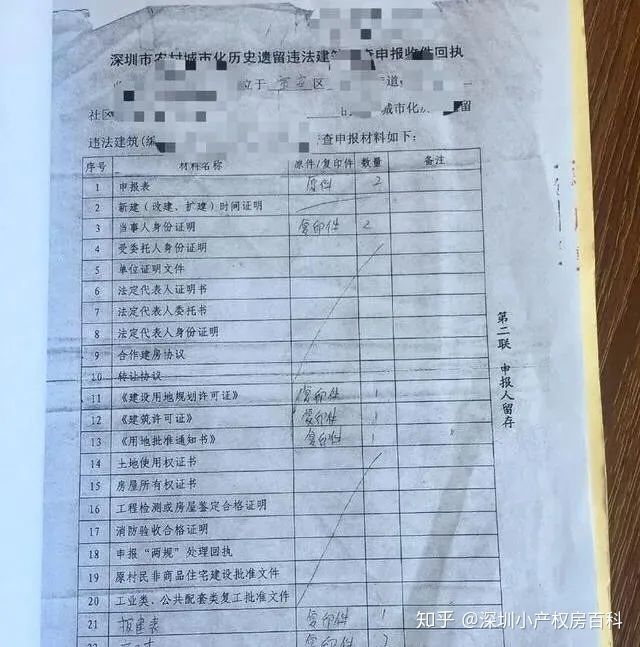 深圳市农村城市化历史遗留违法建筑普查申报收件回执
位于 宝安 区 街道
社区 城市化 留
违法建筑(编 查申报材料如下:
序号 材料名称 原件/复印件 数量 备注
1 申报表 原件 2
2 新建(改建、扩建)时间证明
3 当事人身份证明 复印件 2
4 受委托人身份证明
5 单位证明文件
6 法定代表人证明书
7 法定代表人委托书
8 法定代表人身份证明
9 合作建房协议
10 转让协议
11 《建设用地规划许可证》 复印件 1
12 《建筑许可证》 复印件 1
13 《用地批准通知书》 复印件 1
14 土地使用权证书
15 房屋所有权证书
16 工程检测或房屋鉴定合格证明
17 消防验收合格证明
18 申报“两规”处理回执
19 原村民非商品住宅建设批准文件
20 工业类、公共配套类复工批准文件
21 报建表 复印件 1
22 复印件 2
第二联 申报人留存
知乎 @深圳小产权房百科